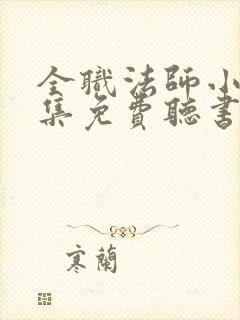 全職法師小
集免費聽書
寒蘭